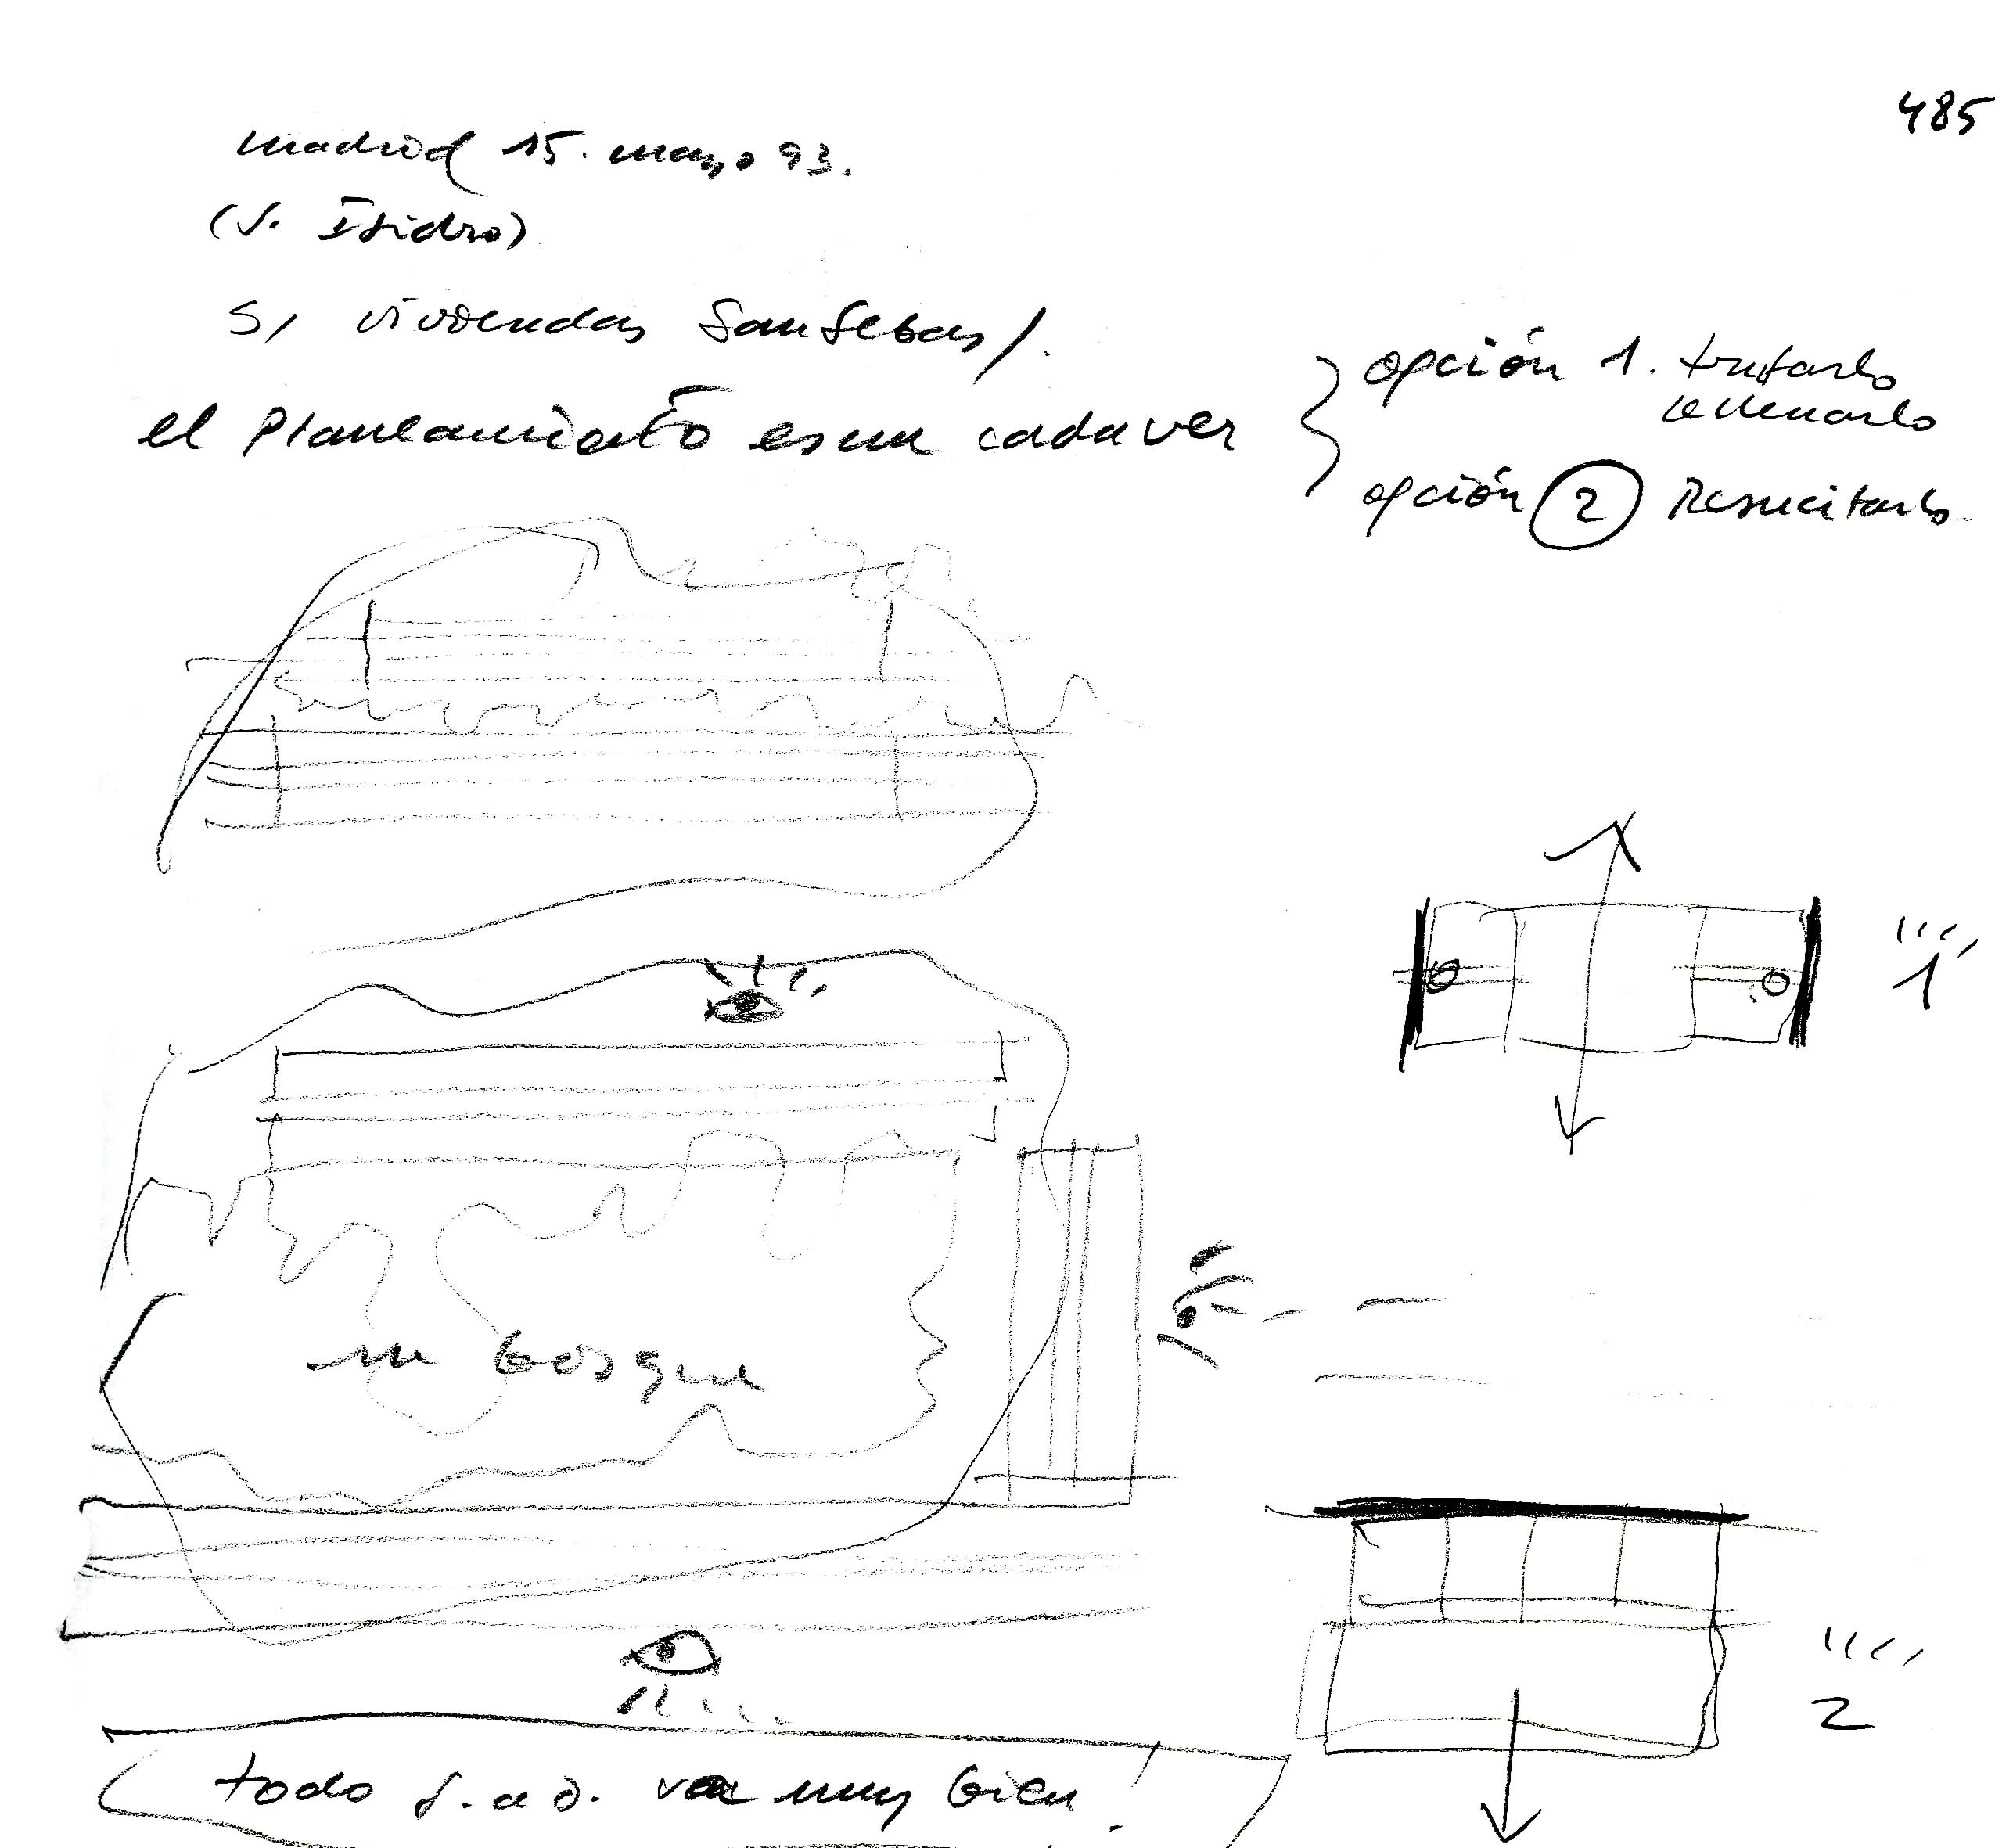 485
Madrid 15. mayo 93.
(S. Isidro)
S/ viviendas San Sebas/.
el Planeamiento es un cadaver
opción 1. trufarlo
rellenarlo
opción 2 Resucitarlo
un bosque
1
2
todo g.a.D. va muy bien!